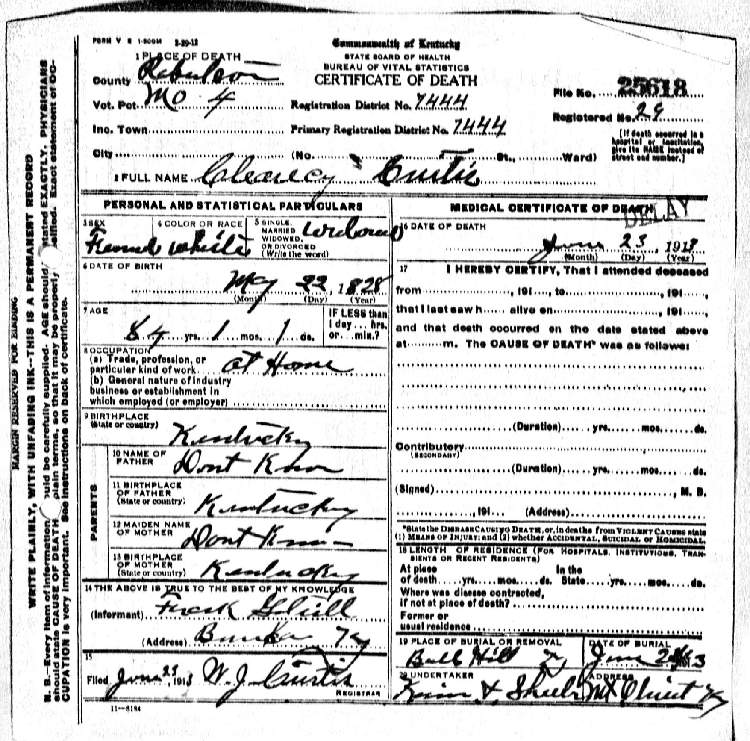 FORM V S 1-500M 2-29-12
Commonwealth of Kentucky
STATE BOARD OF HEALTH
BUREAU OF VITAL STATISTICS
CERTIFICATE OF DEATH
1 PLACE OF DEATH
County
Vot. Pct. No 4
Inc. Town
City
Registration District No. 7444
Primary Registration District No. 7444
(No. St., Ward)
File No. 25618
Registered No. 29
[If death occurred in a hospital or institution, give its NAME instead of street and number.]
2 FULL NAME Curtis
PERSONAL AND STATISTICAL PARTICULARS
3 SEX Female
4 COLOR OR RACE white
5 SINGLE, MARRIED, WIDOWED, OR DIVORCED (Write the word) widowed
6 DATE OF BIRTH
May 22, 1828
(Month) (Day) (Year)
7 AGE
84 yrs. 1 mos. 1 ds.
IF LESS than 1 day... hrs. or... min.?
8 OCCUPATION
(a) Trade, profession, or particular kind of work at Home
(b) General nature of industry business or establishment in which employed (or employer)
9 BIRTHPLACE
(State or country) Kentucky
PARENTS
10 NAME OF FATHER Dont Know
11 BIRTHPLACE OF FATHER (State or country) Kentucky
12 MAIDEN NAME OF MOTHER Dont Know
13 BIRTHPLACE OF MOTHER (State or country) Kentucky
14 THE ABOVE IS TRUE TO THE BEST OF MY KNOWLEDGE
(Informant)
(Address) Ky
15
Filed June 25, 191 W. J. Curtis
REGISTRAR
11-8184
MEDICAL CERTIFICATE OF DEATH
DELAY
16 DATE OF DEATH
June 23, 191
(Month) (Day) (Year)
17 I HEREBY CERTIFY, That I attended deceased
from , 191 to , 191 ,
that I last saw h alive on , 191 ,
and that death occurred on the date stated above
at m. The CAUSE OF DEATH* was as follows:
(Duration) yrs. mos. ds.
Contributory
(SECONDARY)
(Duration) yrs. mos. ds.
(Signed) , M. D.
, 191 (Address)
*State the DISEASE CAUSING DEATH, or, in deaths from VIOLENT CAUSES state (1) MEANS OF INJURY; and (2) whether ACCIDENTAL, SUICIDAL or HOMICIDAL.
18 LENGTH OF RESIDENCE (FOR HOSPITALS, INSTITUTIONS, TRANSIENTS OR RECENT RESIDENTS)
At place of death yrs. mos. ds. In the State yrs. mos. ds.
Where was disease contracted, if not at place of death?
Former or usual residence
19 PLACE OF BURIAL OR REMOVAL
Hill Ky
DATE OF BURIAL
20 UNDERTAKER
ADDRESS
Mt Olivet Ky
MARGIN RESERVED FOR BINDING
WRITE PLAINLY, WITH UNFADING INK--THIS IS A PERMANENT RECORD
N. B.--Every item of information should be carefully supplied. AGE should be stated EXACTLY. PHYSICIANS
should state CAUSE OF DEATH in plain terms, so that it may be properly classified. Exact statement of OC-
CUPATION is very important. See instructions on back of certificate.